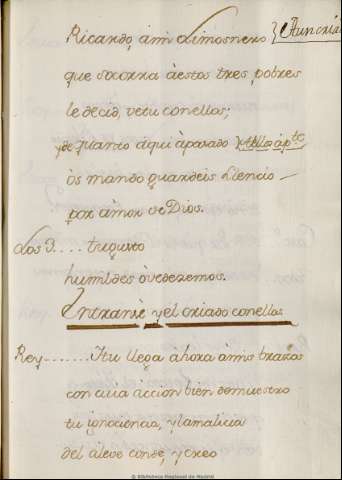 Ricardo, â mi Limosnero } â un criado
que socorra à estos tres pobres
le decid, ve tu con ellos;
y de quanto aqui â pasado } â ellos âp.te
òs mando guardeis silencio
por âmor de Dios.
Los 3.... tu gusto
humildes òvedezemos.
Entranse y el criado con ellos
Rey....... I tu llega âhora â mis brazos
con cuia accion bien demuestro
tu ignocencia, y la malicia
del aleve conde, y creo
© Biblioteca Nacional de Madrid